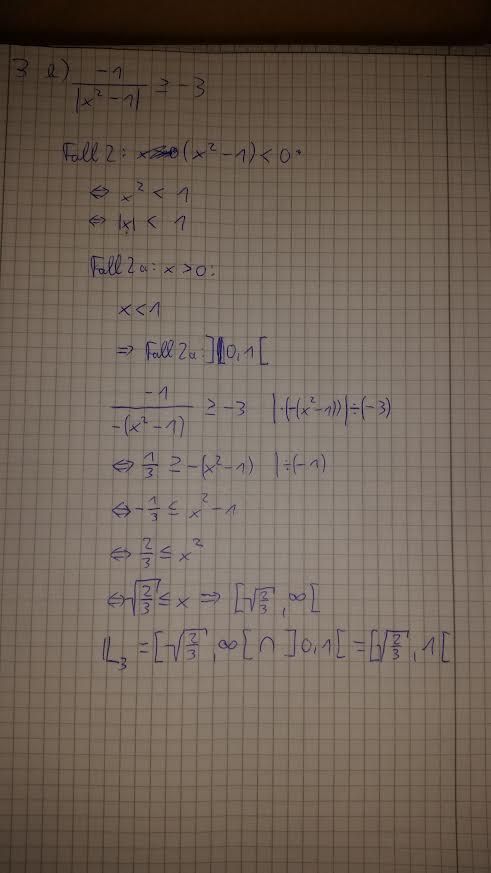 3 a) -1/|x²-1| ≥ -3
Fall 2: (x²-1) < 0:
⇔ x² < 1
⇔ |x| < 1
Fall 2a: x > 0:
x < 1
⇒ Fall 2a: ]0,1[
-1/-(x²-1) ≥ -3 | ·(-(x²-1)) | ÷(-3)
⇔ 1/3 ≥ -(x²-1) | ÷(-1)
⇔ -1/3 ≤ x²-1
⇔ 2/3 ≤ x²
⇔ √(2/3) ≤ x ⇒ [√(2/3), ∞[
𝕃₃ = [√(2/3), ∞[ ∩ ]0,1[ = [√(2/3), 1[